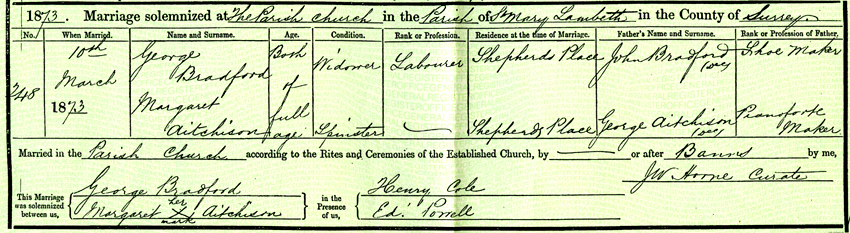 1873. Marriage solemnized at The Parish Church in the Parish of St Mary Lambeth in the County of Surrey
No. When Married. Name and Surname. Age. Condition. Rank or Profession. Residence at the time of Marriage. Father's Name and Surname. Rank or Profession of Father.
248
10th March 1873
George Bradford
Both of full age
Widower
Labourer
Shepherds Place
John Bradford (dec)
Shoe Maker
Margaret Aitchison
Spinster
Shepherds Place
George Aitchison (dec)
Pianoforte Maker
Married in the Parish Church according to the Rites and Ceremonies of the Established Church, by — or after Banns by me,
JW Horne Curate
This Marriage was solemnized between us,
George Bradford
Margaret X Aitchison
her mark
in the Presence of us,
Henry Cole
Ed. Powell